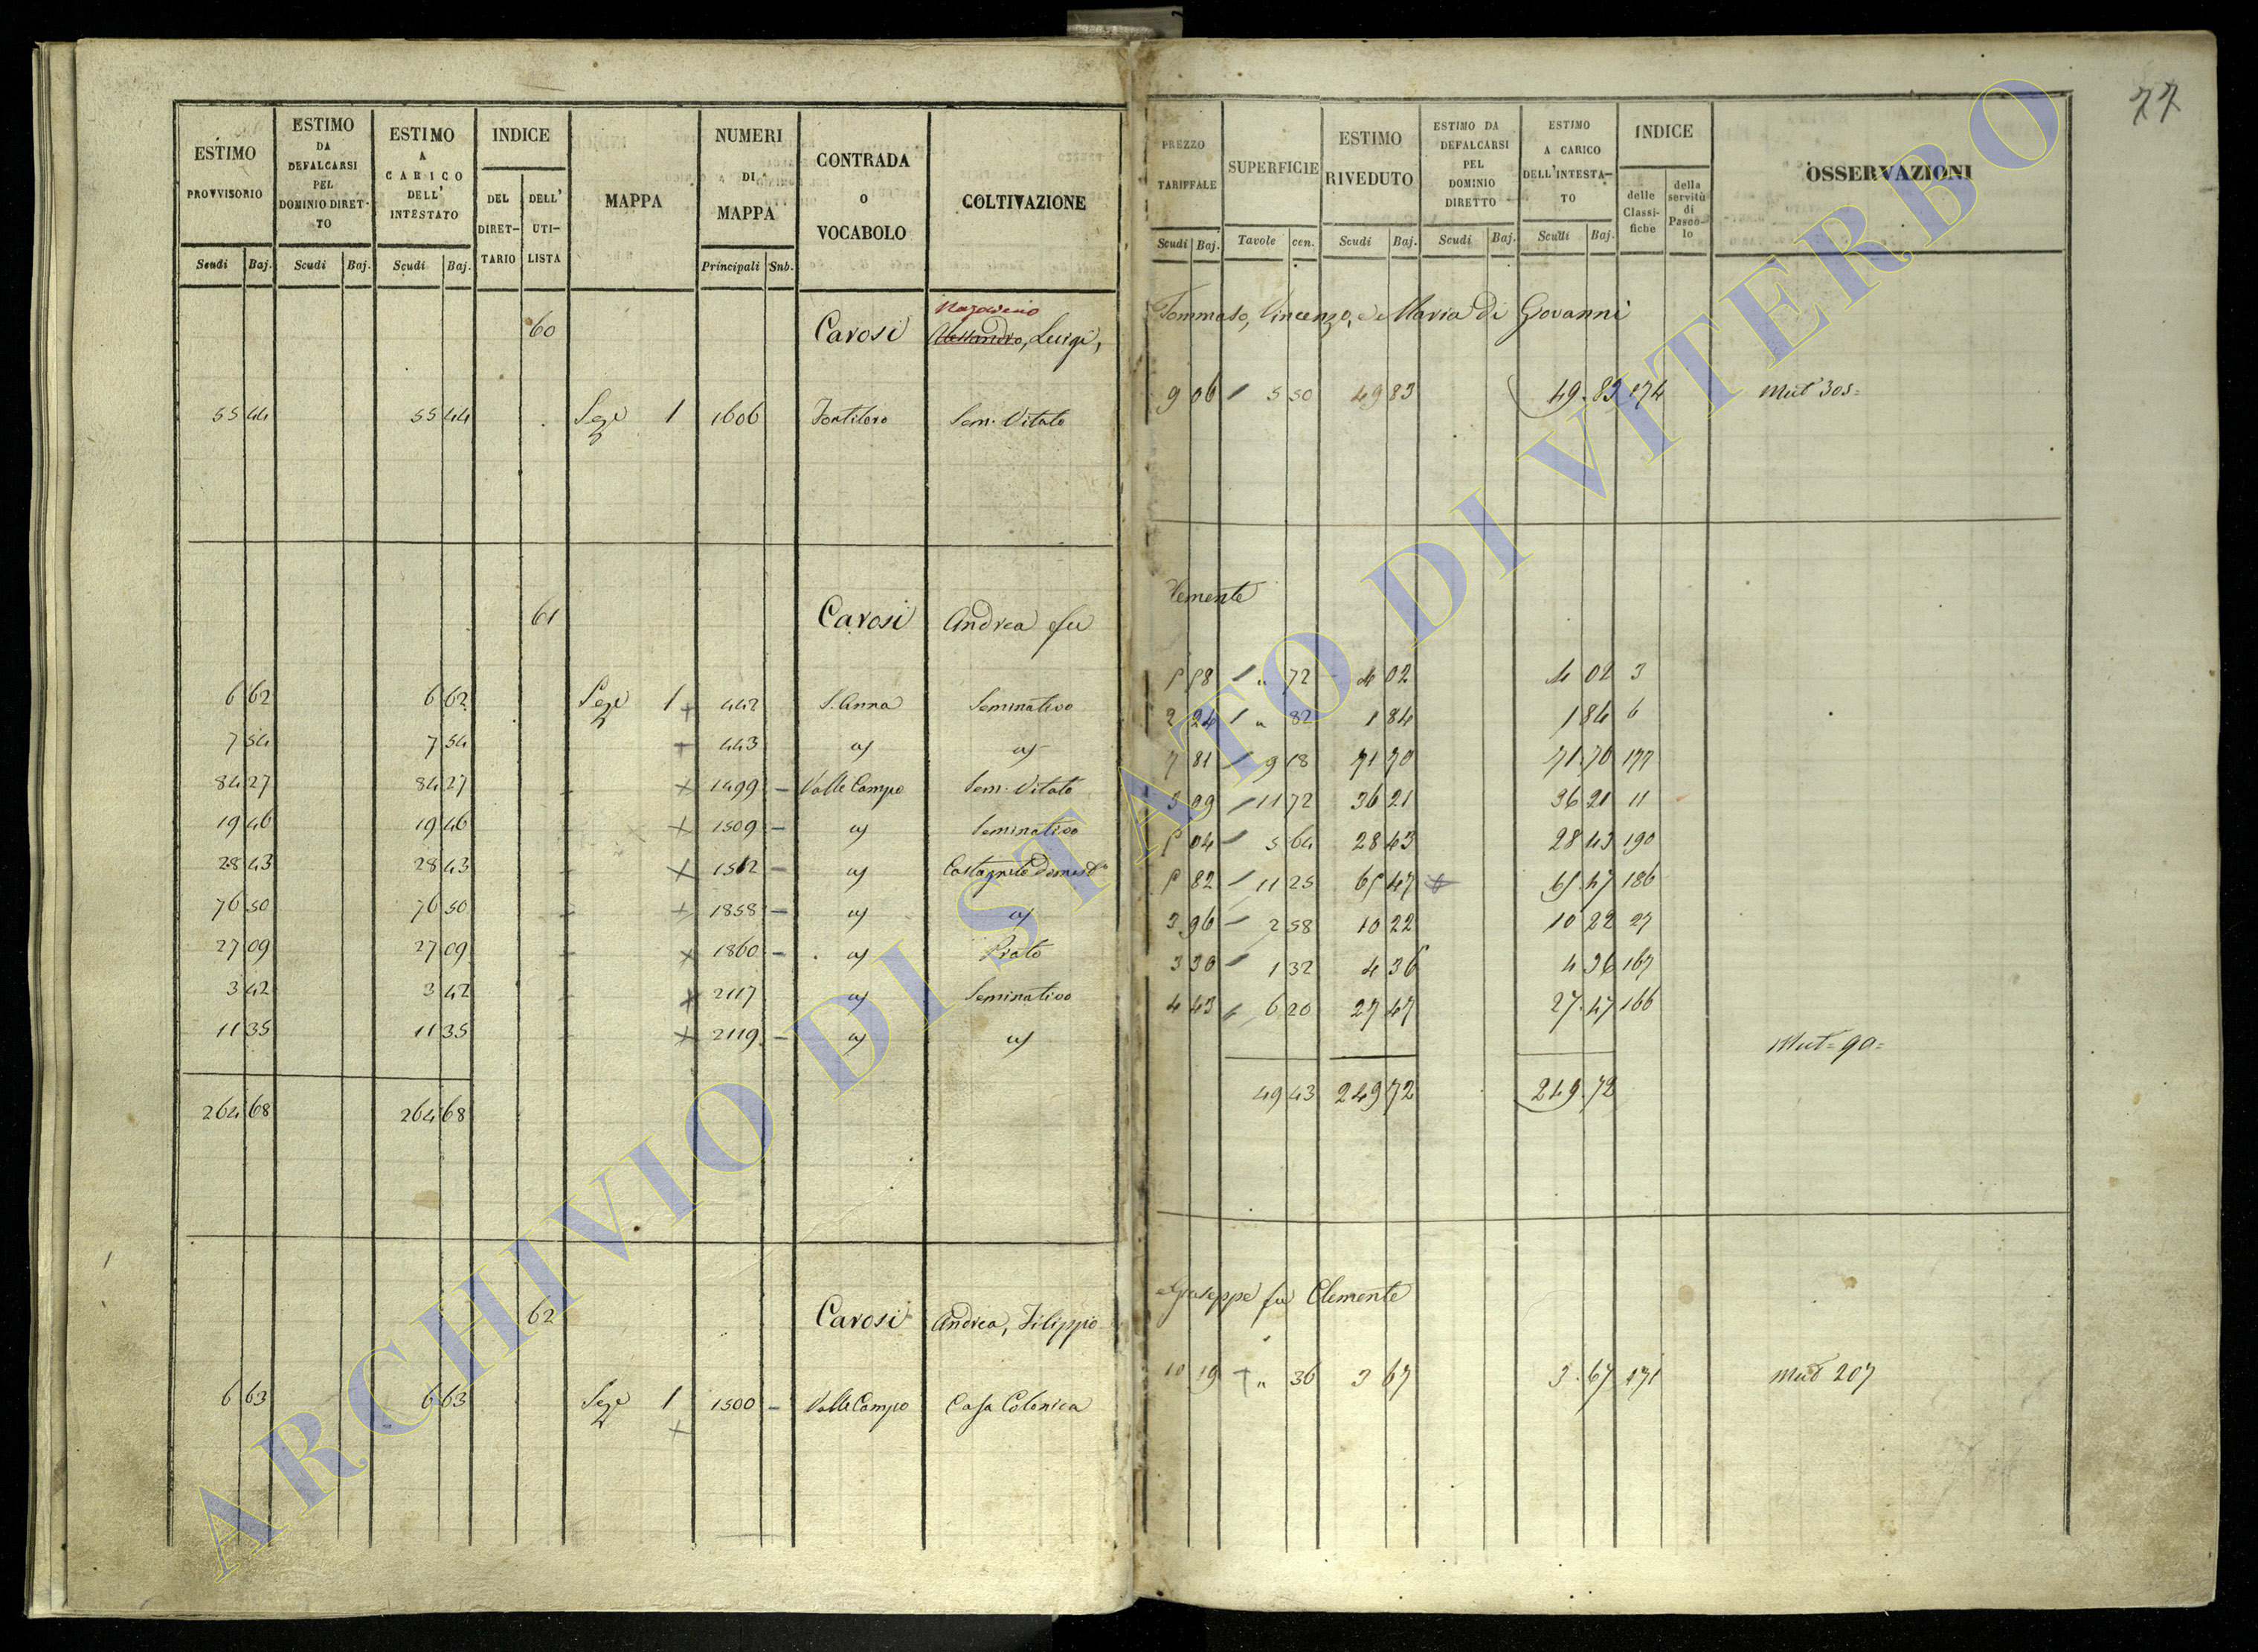 77
ESTIMO PROVVISORIO | ESTIMO DA DEFALCARSI PEL DOMINIO DIRETTO | ESTIMO A CARICO DELL' INTESTATO | INDICE | MAPPA | NUMERI DI MAPPA | CONTRADA O VOCABOLO | COLTIVAZIONE | PREZZO TARIFFALE | SUPERFICIE | ESTIMO RIVEDUTO | ESTIMO DA DEFALCARSI PEL DOMINIO DIRETTO | ESTIMO A CARICO DELL'INTESTATO | INDICE | OSSERVAZIONI
DEL DIRETTARIO | DELL' UTILISTA | delle Classifiche | della servitù di Pascolo
Scudi Baj. | Scudi Baj. | Scudi Baj. | Principali Snb. | Scudi Baj. | Tavole cen. | Scudi Baj. | Scudi Baj. | Scudi Baj.
Nazareno
60 Carosi Alessandro, Luigi, Tommaso, Vincenzo, e Maria di Giovanni
55 44 55 44 Seze 1 1606 Fontiloro Sem. Vitato 9 06 5 50 49 83 49.83 174 Mut 305=
61 Carosi Andrea fu Clemente
6 62 6 62 Seze 1 442 S. Anna Seminativo 5 58 " 72 4 02 4 02 3
7 54 7 54 443 2 24 " 82 1 84 1 84 6
84 27 84 27 1499 Valle Campo Sem. Vitato 7 81 9 18 71 70 71.70 177
19 46 19 46 1509 Seminativo 3 09 11 72 36 21 36 21 11
28 43 28 43 1512 Castagneto Domest° 5 04 5 64 28 43 28 43 190
76 50 76 50 1858 5 82 11 25 65 47 65.47 186
27 09 27 09 1860 Prato 3 96 2 58 10 22 10 22 27
3 42 3 42 2117 Seminativo 3 30 1 32 4 36 4 36 167
11 35 11 35 2119 4 43 6 20 27 47 27.47 166
Mut= 90=
264 68 264 68 49 43 249 72 249.72
62 Carosi Andrea, Filippo Giuseppe fu Clemente
6 63 6 63 Seze 1 1500 Valle Campo Casa Colonica 10 19 " 36 3 67 3.67 171 Mut 207
ARCHIVIO DI STATO DI VITERBO